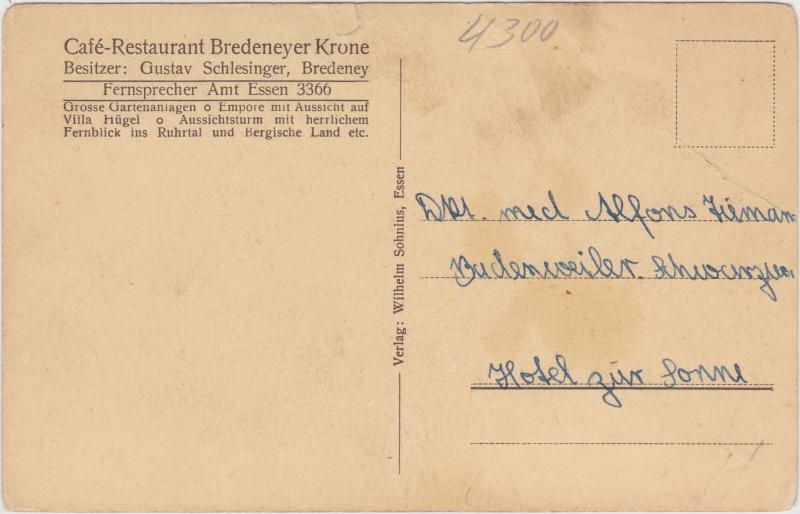 Café-Restaurant Bredeneyer Krone
Besitzer: Gustav Schlesinger, Bredeney
Fernsprecher Amt Essen 3366
Grosse Gartenanlagen o Empore mit Aussicht auf
Villa Hügel o Aussichtsturm mit herrlichem
Fernblick ins Ruhrtal und Bergische Land etc.
4300
Verlag: Wilhelm Sohnius, Essen
med Alfons
Badenweiler
Hotel zur Sonne